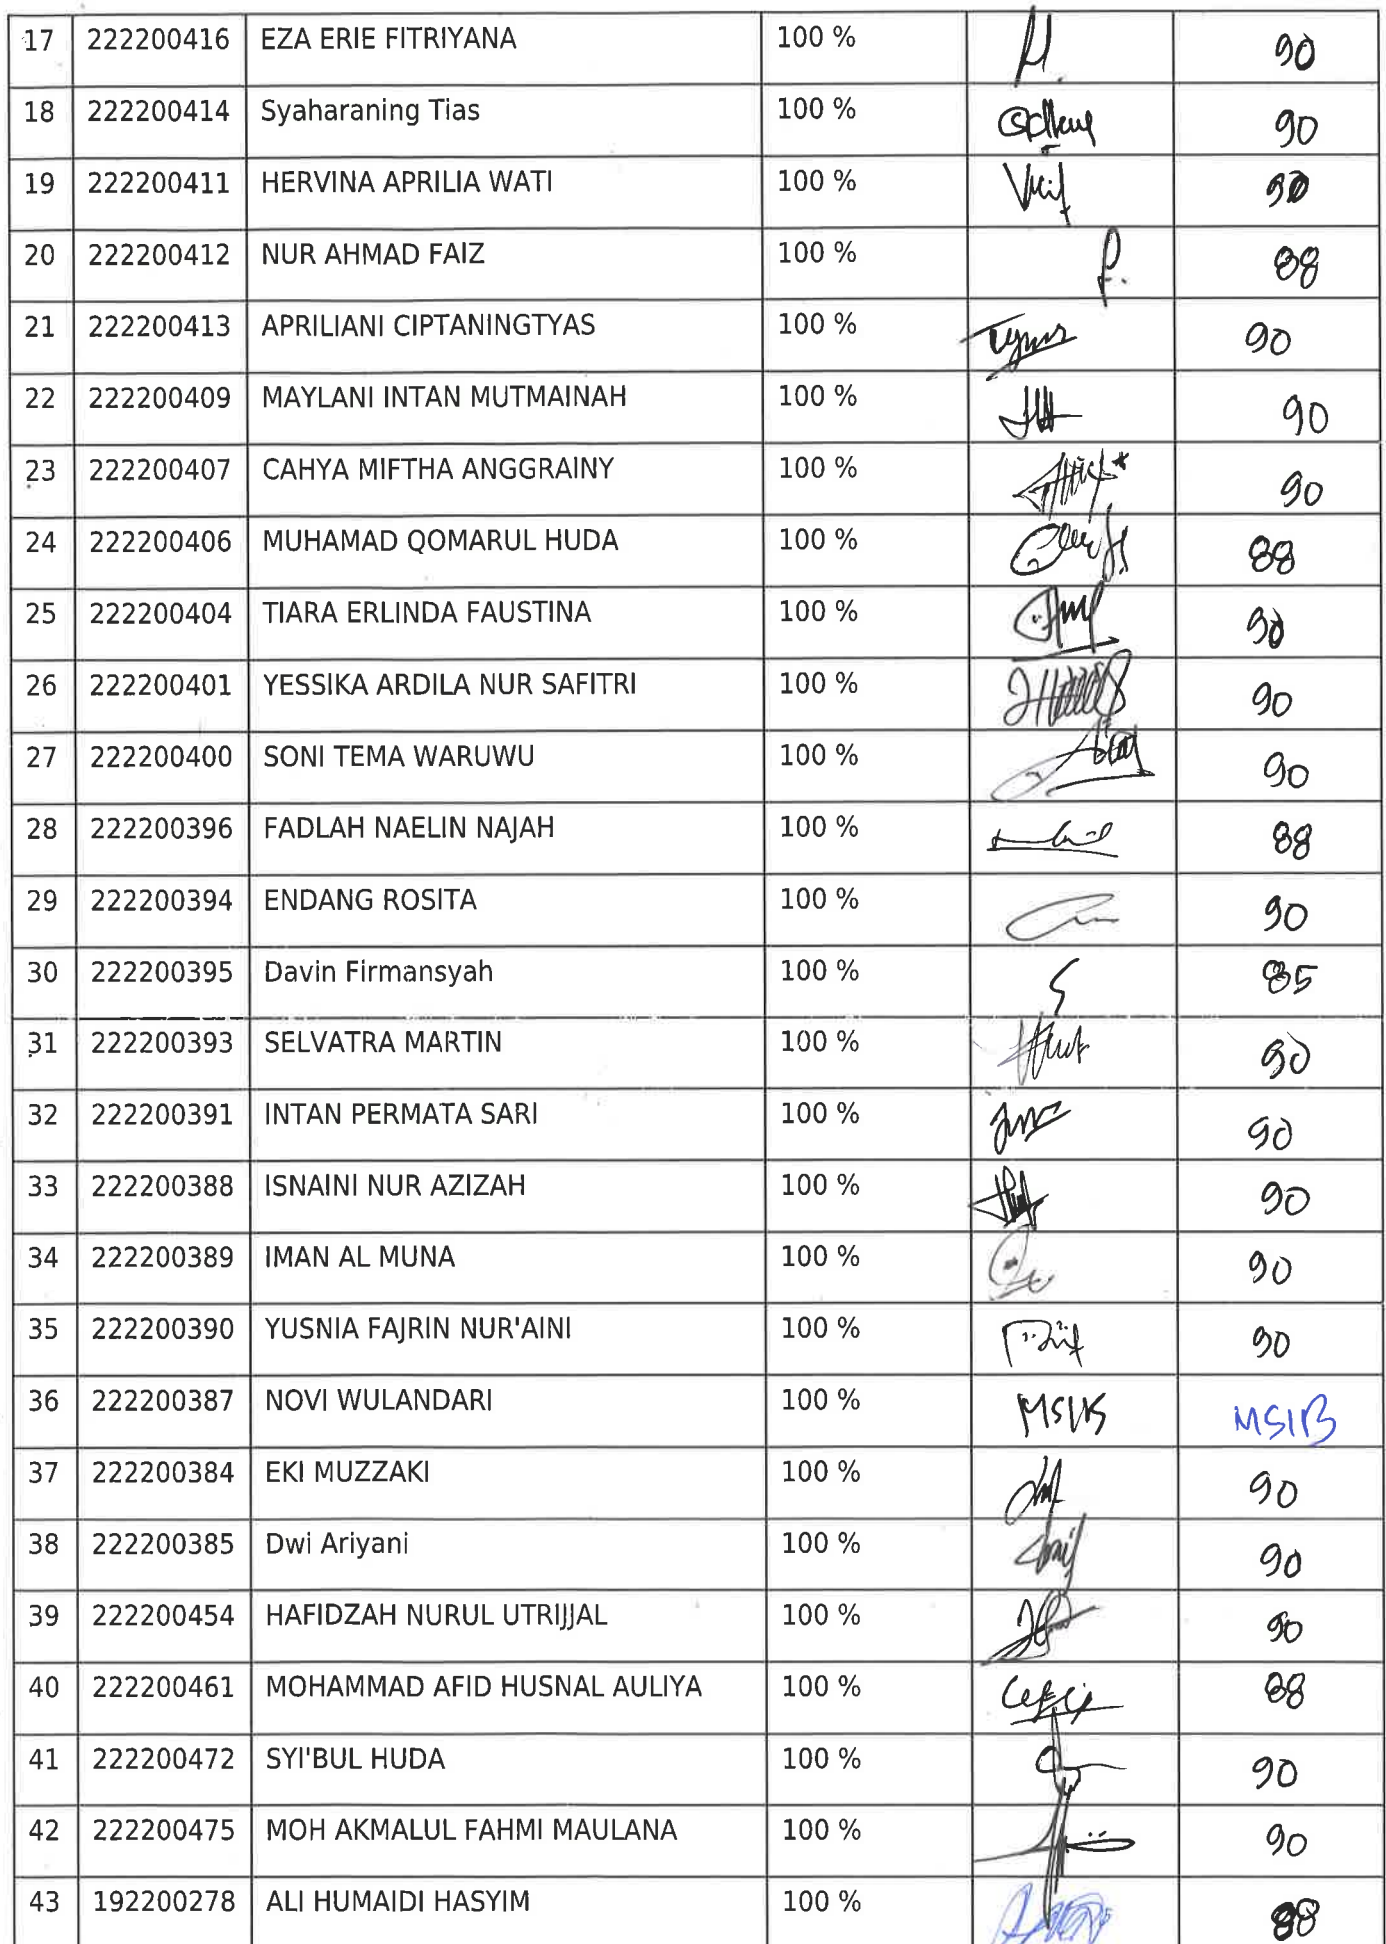 17 222200416 EZA ERIE FITRIYANA 100 % 90
18 222200414 Syaharaning Tias 100 % 90
19 222200411 HERVINA APRILIA WATI 100 % 90
20 222200412 NUR AHMAD FAIZ 100 % 88
21 222200413 APRILIANI CIPTANINGTYAS 100 % 90
22 222200409 MAYLANI INTAN MUTMAINAH 100 % 90
23 222200407 CAHYA MIFTHA ANGGRAINY 100 % 90
24 222200406 MUHAMAD QOMARUL HUDA 100 % 88
25 222200404 TIARA ERLINDA FAUSTINA 100 % 90
26 222200401 YESSIKA ARDILA NUR SAFITRI 100 % 90
27 222200400 SONI TEMA WARUWU 100 % 90
28 222200396 FADLAH NAELIN NAJAH 100 % 88
29 222200394 ENDANG ROSITA 100 % 90
30 222200395 Davin Firmansyah 100 % 85
31 222200393 SELVATRA MARTIN 100 % 90
32 222200391 INTAN PERMATA SARI 100 % 90
33 222200388 ISNAINI NUR AZIZAH 100 % 90
34 222200389 IMAN AL MUNA 100 % 90
35 222200390 YUSNIA FAJRIN NUR'AINI 100 % 90
36 222200387 NOVI WULANDARI 100 % MSIB
37 222200384 EKI MUZZAKI 100 % 90
38 222200385 Dwi Ariyani 100 % 90
39 222200454 HAFIDZAH NURUL UTRIJJAL 100 % 90
40 222200461 MOHAMMAD AFID HUSNAL AULIYA 100 % 88
41 222200472 SYI'BUL HUDA 100 % 90
42 222200475 MOH AKMALUL FAHMI MAULANA 100 % 90
43 192200278 ALI HUMAIDI HASYIM 100 % 88